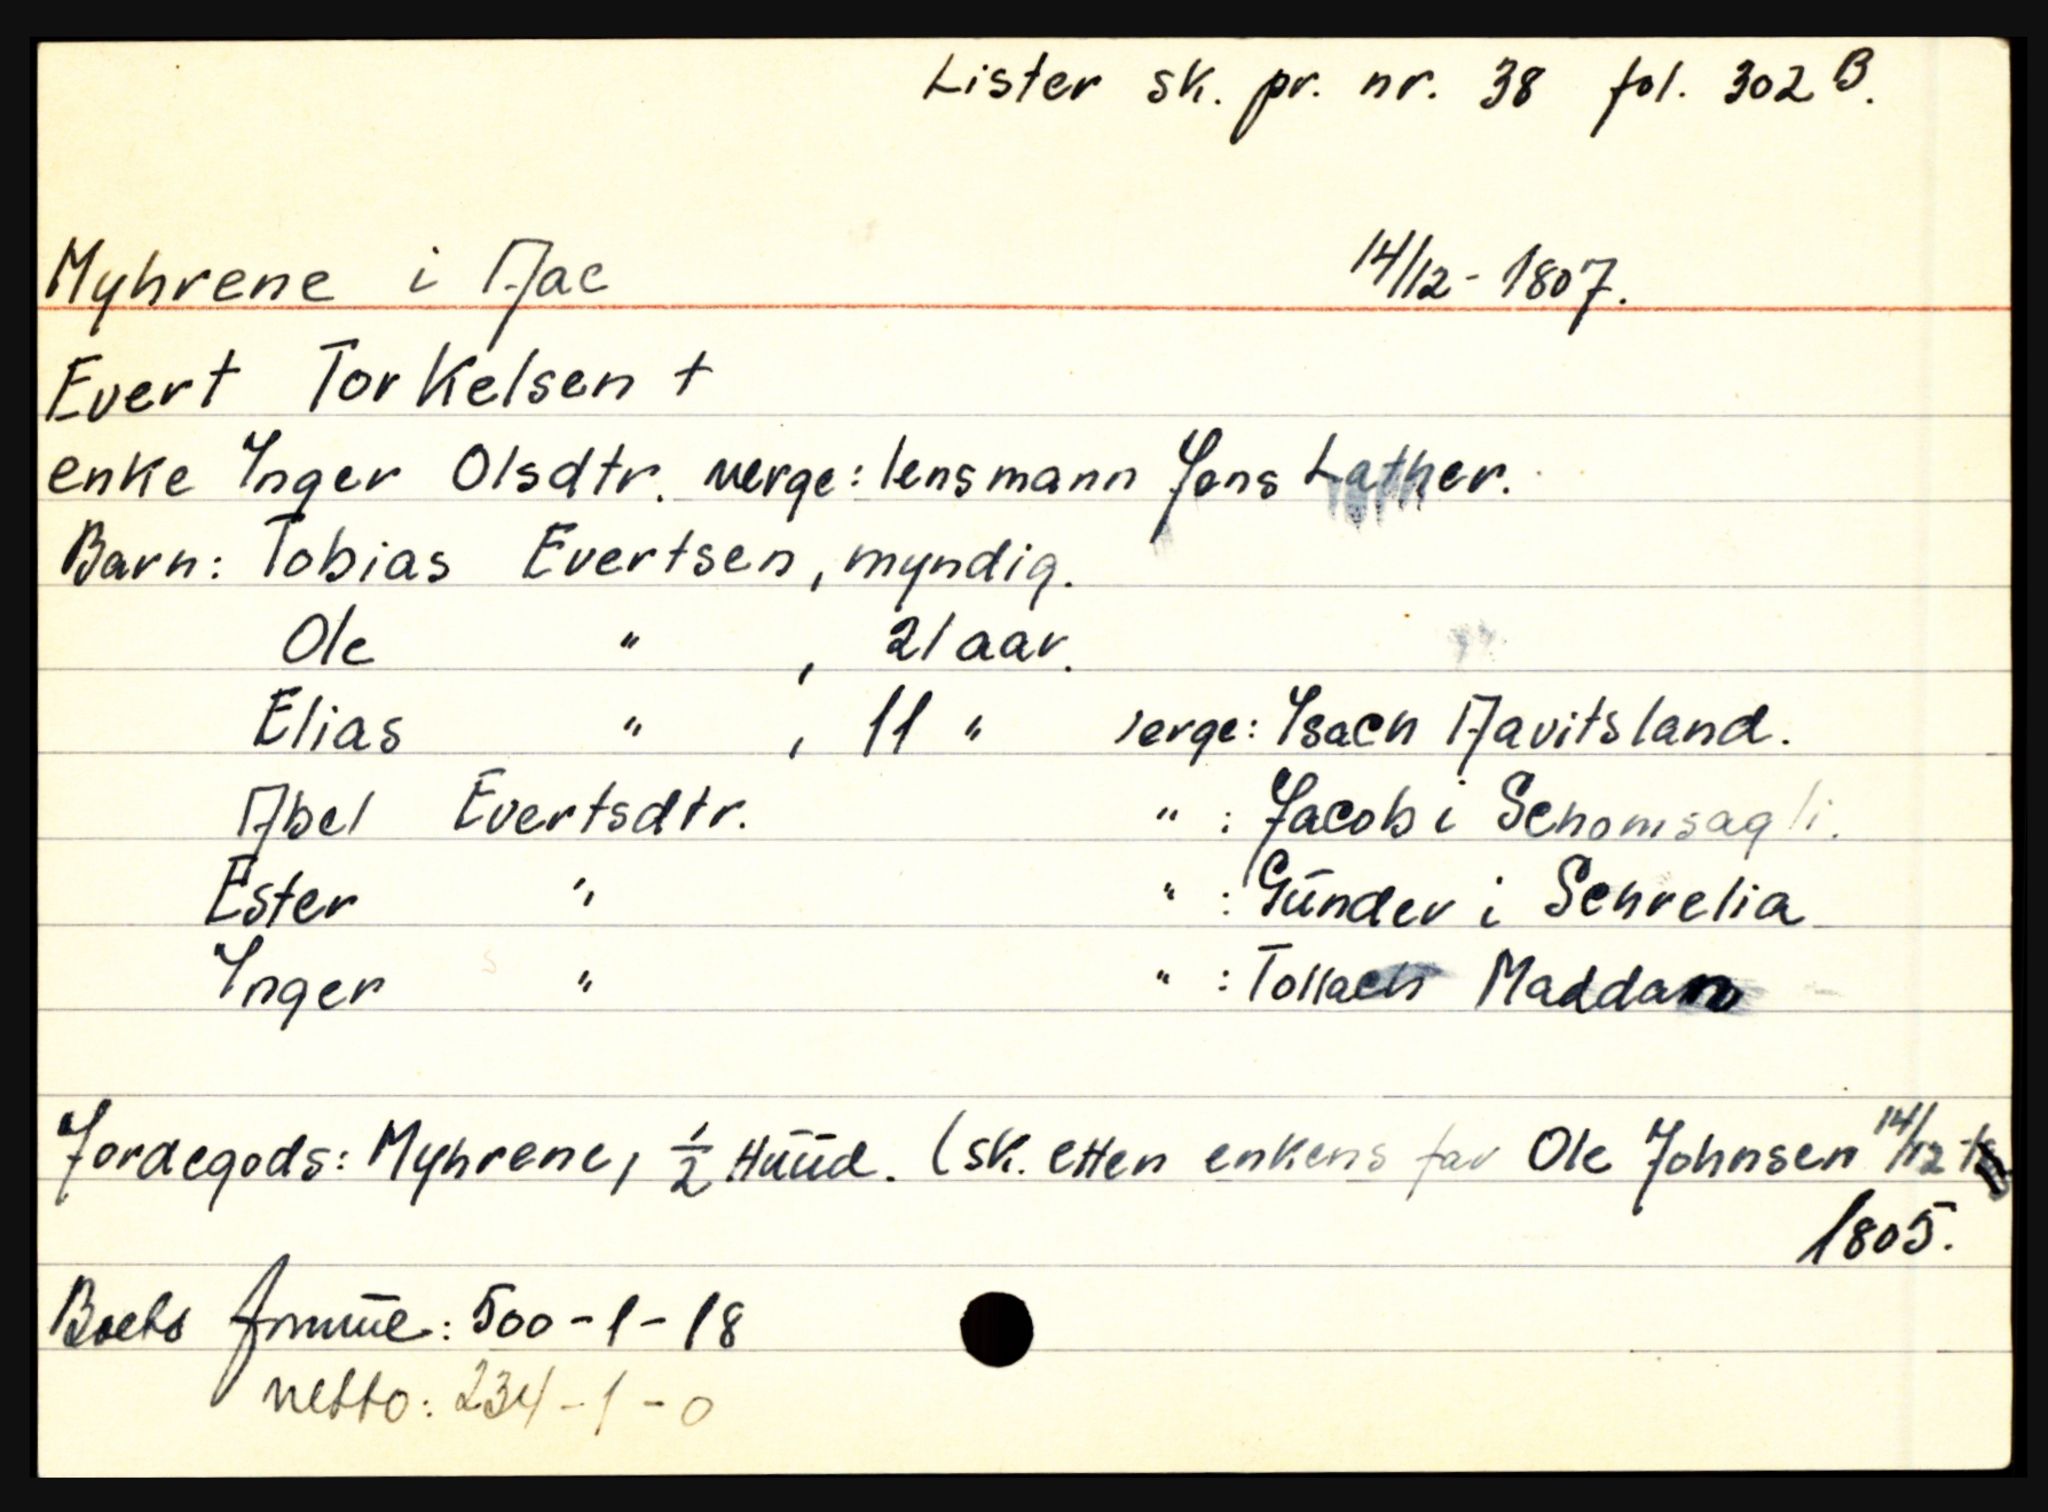 Lister sk. pr. nr. 38 fol. 302 B.
Myhrene i Aac 14/12 - 1807.
Evert Torkelsen +
enke Inger Olsdtr. verge: lensmann Jens Lather.
Barn: Tobias Evertsen, myndig.
Ole " , 21 aar.
Elias " , 11 " verge: Isach Aavitsland.
Abel Evertsdtr. " : Jacob i Schomsagli.
Ester " " : Gūnder i Schrelia
Inger " " : Tollach Maddan
Jordegods: Myhrene, 1/2 Hūūd. (sk. etten enkens far Ole Johnsen 14/12
1805.
Boets : 500 - 1 - 18
netto: 234 - 1 - 0